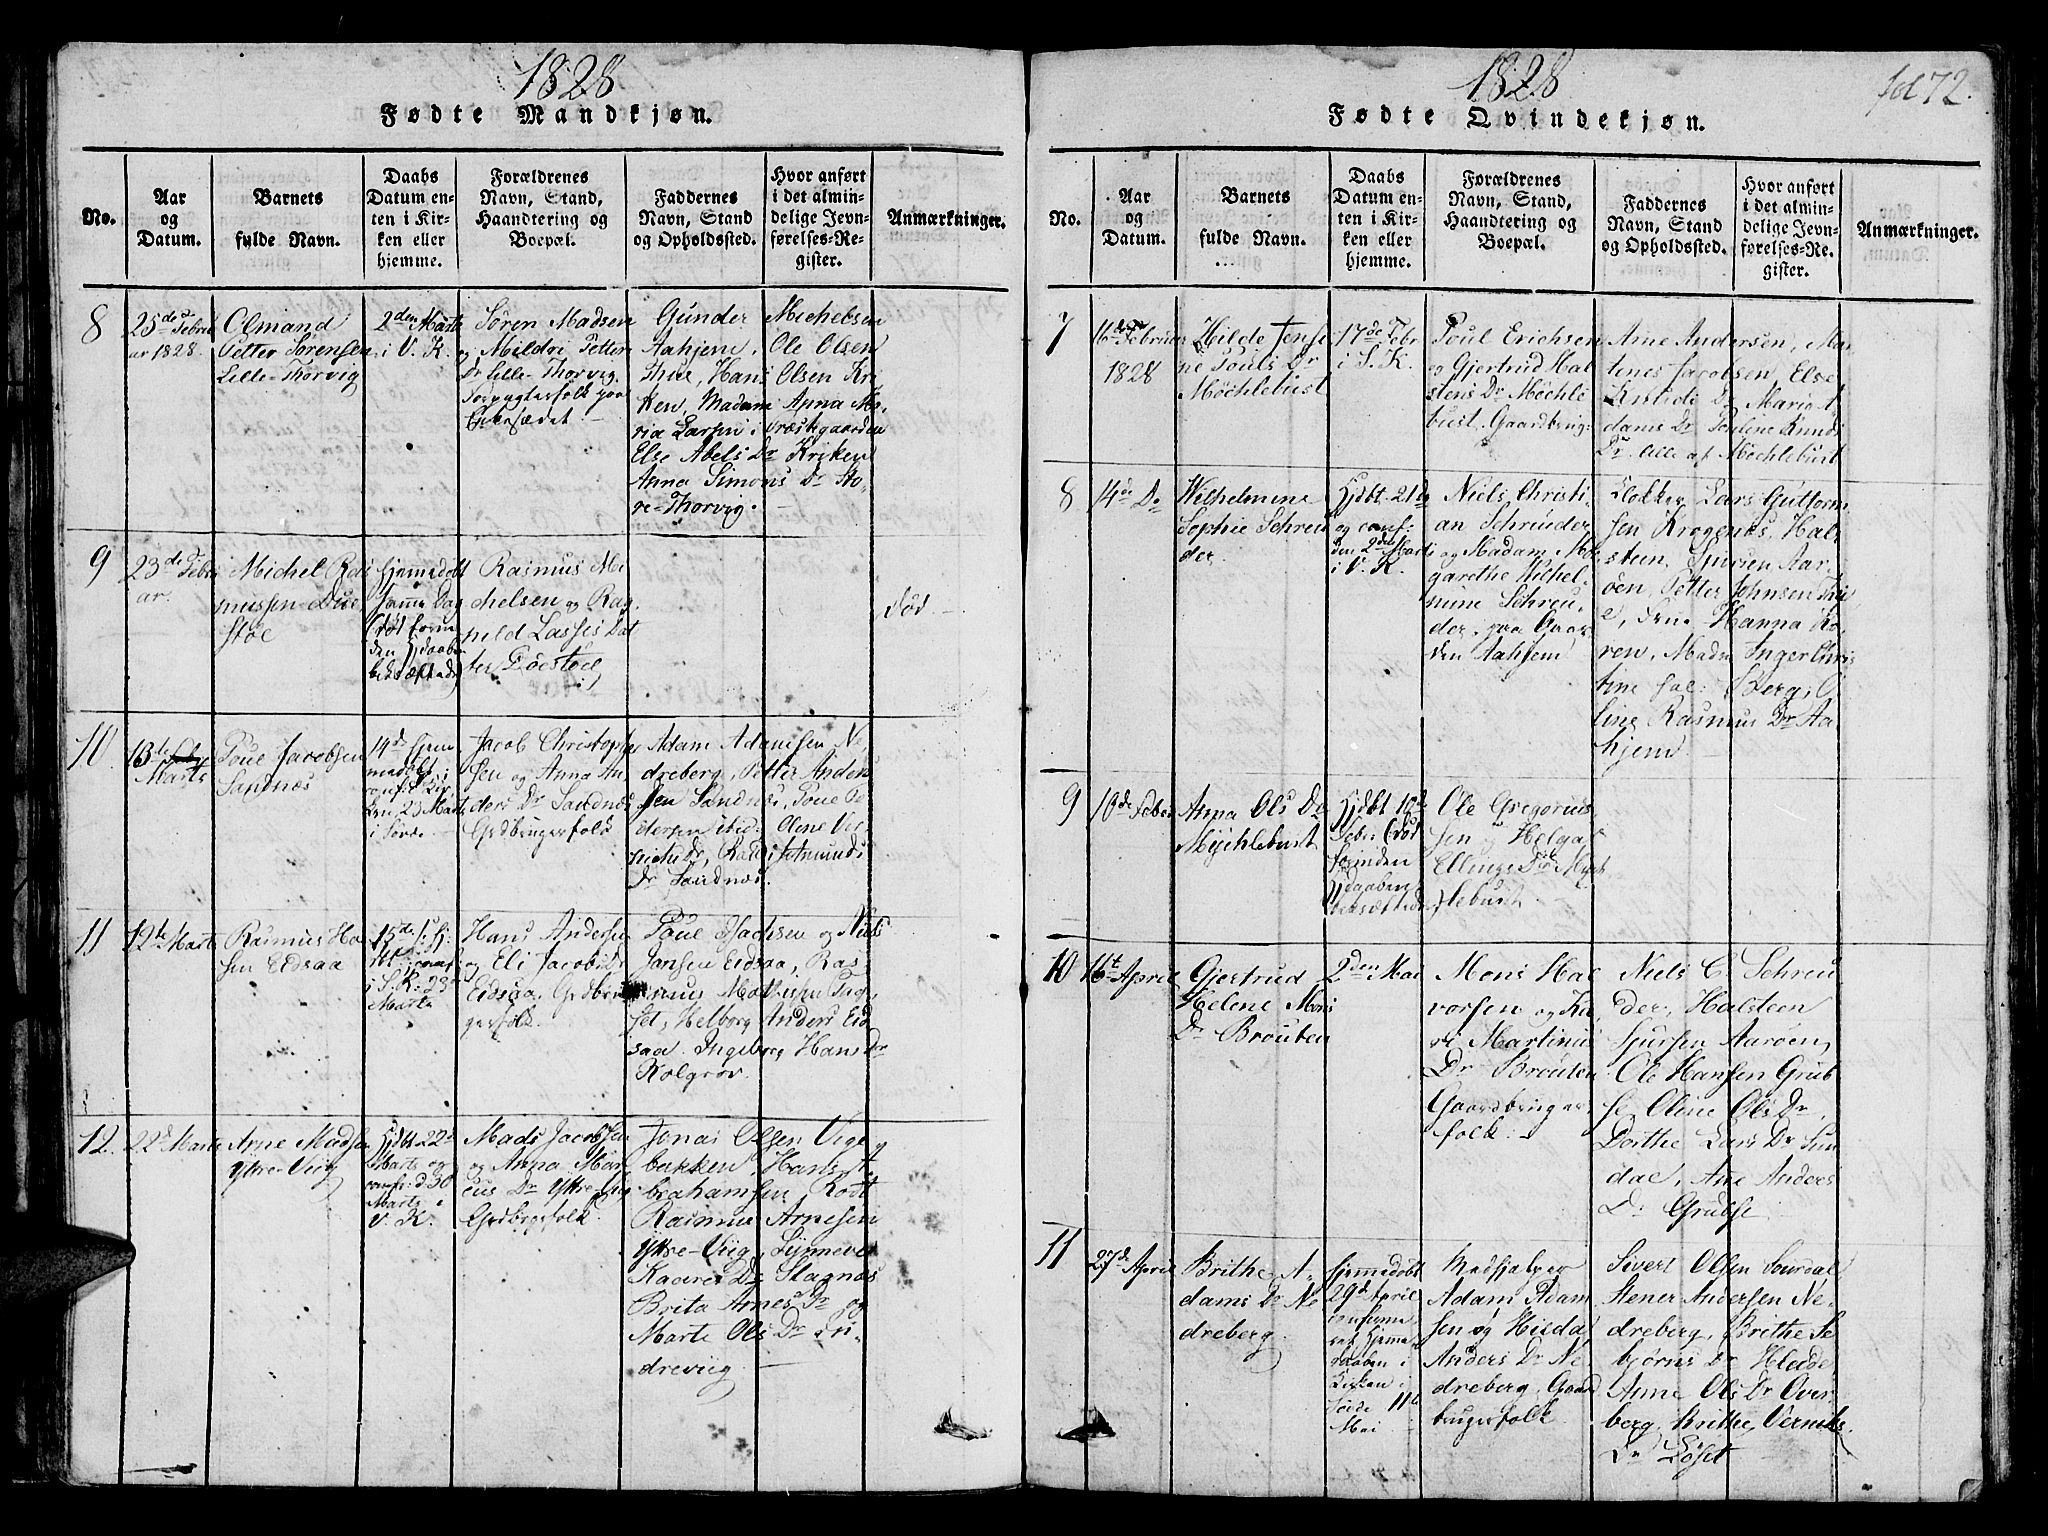 1828
Fødte Mandkjøn.
No.
Aar
og
Datum.
Barnets
fulde Navn.
Daabs
Datum en-
ten i Kir-
ken eller
hjemme.
Forældrenes
Navn, Stand,
Haandtering og
Boepæl.
Faddernes
Navn, Stand
og Opholdssted.
Hvor anført
i det almin-
delige Jevn-
førelses-Re-
gister.
Anmærkninger.
8
25de Febru
ar 1828.
Olmand
Petter Sørensen
Lille-Thorvig
2den Marts
i V. K.
Søren Madsen
og Mildri Petter
Dr Lille-Thorvig.
Gunder Michelsen
Aahjem, Ole Olsen
Thue, Hans Olsen Kri
ken, Madam Anna Ma-
ria Larsen i Præstegaarden
Else Abels Dr Kriken
Anna Simons Dr Sto-
re-Thorvig.
9
23de Febru
ar.
Michel Ras
mussen
støe
hjemmedøbt
samme Dag
(død forin
den Hjdaaben
bekræftede)
Rasmus Mi
chelsen og Rag
nild Lasses Dat
ter
død
10
13de
Marts
Poul Jacobsen
Sandnæs
14de hjem
medøbt i
conf. i Kir
ken 23 Marts
i Søvde
Jacob Christophe
sen og Anna An
ders Dr Sandnæs
Grdbrugerfolk
Adam Adamsen Ne
dreberg, Petter Anders
sen Sandnæs, Poul P
edersen ibid. Olene
Dr Sandnæs.
11
12te Marts
Rasmus Han
sen Eidsaa
15de
i S. K. 23
Marts
Hans Andersen
og Eli Jacobs Dr
Eidsaa, Grdbru
gerfolk.
Poul Isachsen og Niels
Jansen Eidsaa, Ras
mus Mathisen
set, Helborg Anders Eid
saa. Ingeborg Hans Dr
Kolgrov.
12
22de Marts
Arne Madsen
Ytre-Viig
Hjdbt 22de
Marts og
conf. d 30
Marts i
V. K.
Mads Jacobsen
og Anna Mar
cus Dr Ytre-Viig
Grdbrgerfolk.
Jonas Olsen Vige
bakken, Hans A
brahamsen, Rott
Rasmus Arnesen
Ytre-Viig, Synneve
Kaares Dr Slagnæs
Brita Arnes Dr og
Marte Ols Dr In
dreviig
1828
fol 72.
Fødte Qvindekjøn.
No.
Aar
og
Datum.
Barnets
fulde Navn.
Daabs
Datum en-
ten i Kir-
ken eller
hjemme.
Forældrenes
Navn, Stand,
Haandtering og
Boepæl.
Faddernes
Navn, Stand
og Opholdssted.
Hvor anført
i det almin-
delige Jevn-
førelses-Re-
gister.
Anmærkninger.
7
16de Februar
1828
Hilde Jensi
ne Pouls Dr
Møchlebust
17de Febr
i S. K.
Poul Erichsen
og Gjertrud Hal
stens Dr Møchle
bust, Gaardbrug.
Arne Andersen, Mar
tenes Jacobsen, Else
Knuds Dr Mari A
dams Dr Pauline Knuds
Dr. alle af Møchlebust
8
14de Do
Wilhelmine
Sophie Schreu
der.
Hjdbt. 21de
og conf.
den 2den Marts
i V. K.
Niels Christi
an Schreuder
og Madam Mar
garethe Wilhel
mine Schreu
der, paa Gaar
den Aahjem
Klokker Lars Guttorm
sen Krogenæs, Hal
steen Sjursen Aar
øen, Petter Johnsen
Hanna Ko
ren, Madm Inger Chris
tine Berg, O
line Rasmus Dr Aa
hjem
9
10de Febr
Anna Ols Dr
Mychlebust
Hjdbt 10de
Febr (død
forinden
Hjdaaben
bekræftedes)
Ole Gregorius
sen og Helga
Ellings Dr Myck
lebust.
10
16t April
Gjertrud
Helene Mons
Dr Brouten
2den Mai
Mons Hal
vorsen og Ka
ri Martinus
Dr Brouten
Gaardbruger
folk.
Niels C. Schreu
der, Halsteen
Sjursen Aarøen,
Ole Hansen Grub
se, Oline Ols Dr.
Dorthe Lars Dr Sun
dal, Ane Anders
Dr Grubse
11
27de April
Brithe A-
dams Dr Ne
dreberg
Hjemmedøbt
29de April
confirme
ret hjemme
daaben i
Kirken i
Søvde 11te
Mai
Medhjelper
Adam Adam
sen og Hilda
Anders Dr Ne
dreberg, Gaard
brugerfolk
Sivert Olsen Sourdal
Stener Andersen Ne-
dreberg, Brithe Se
bjørns Dr Hleide
Anne Ols Dr Over
berg, Brithe
Dr Løset